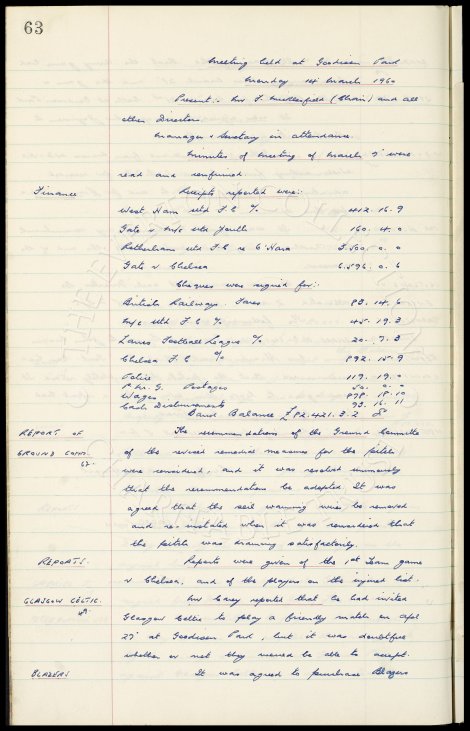 63
Meeting held at Goodison Park
Monday 1st March 1960
Present:- Mr F. Micklesfield (Chair) and all
other Directors
Manager & Secretary in attendance.
Minutes of Meeting of March were
read and confirmed
Finance Receipts reported were:-
West Ham Utd F.C. % 412. 16. 9
Gate v M/c Utd Youth 160. 4. 0
Rotherham Utd F.C. re O'Hara 3,500. 0. 0
Gate v Chelsea 6.596. 0. 6
Cheques was signed for:-
British Railways. Fares 83. 14. 6
M/c Utd F.C. % 45. 19. 3
Lancs Football League % 20. 7. 3
Chelsea F.C. % 892. 15. 9
Police 119. 19. 0
P.M.G. Postages 50. 0. 0
Wages 878. 18. 10
Cash Disbursements 93. 16. 11
Bank Balance £82.421. 3. 2
REPORT OF The recommendations of the Ground Committee
GROUND COMM. of the revised remedial measures for the pitch
were considered, and it was resolved
that the recommendations be adopted. It was
agreed that the soil warming wires be removed
and re-instated when it was considered that
the pitch was draining satisfactorily.
REPORTS. Reports were given of the 1st Team game
v Chelsea, and of the players on the injured list.
GLASGOW CELTIC. Mr Carey reported that he had invited
Glasgow Celtic to play a friendly match on Apl
27' at Goodison Park, but it was doubtful
whether or not they would be able to accept.
BLAZERS It was agreed to purchase Blazers